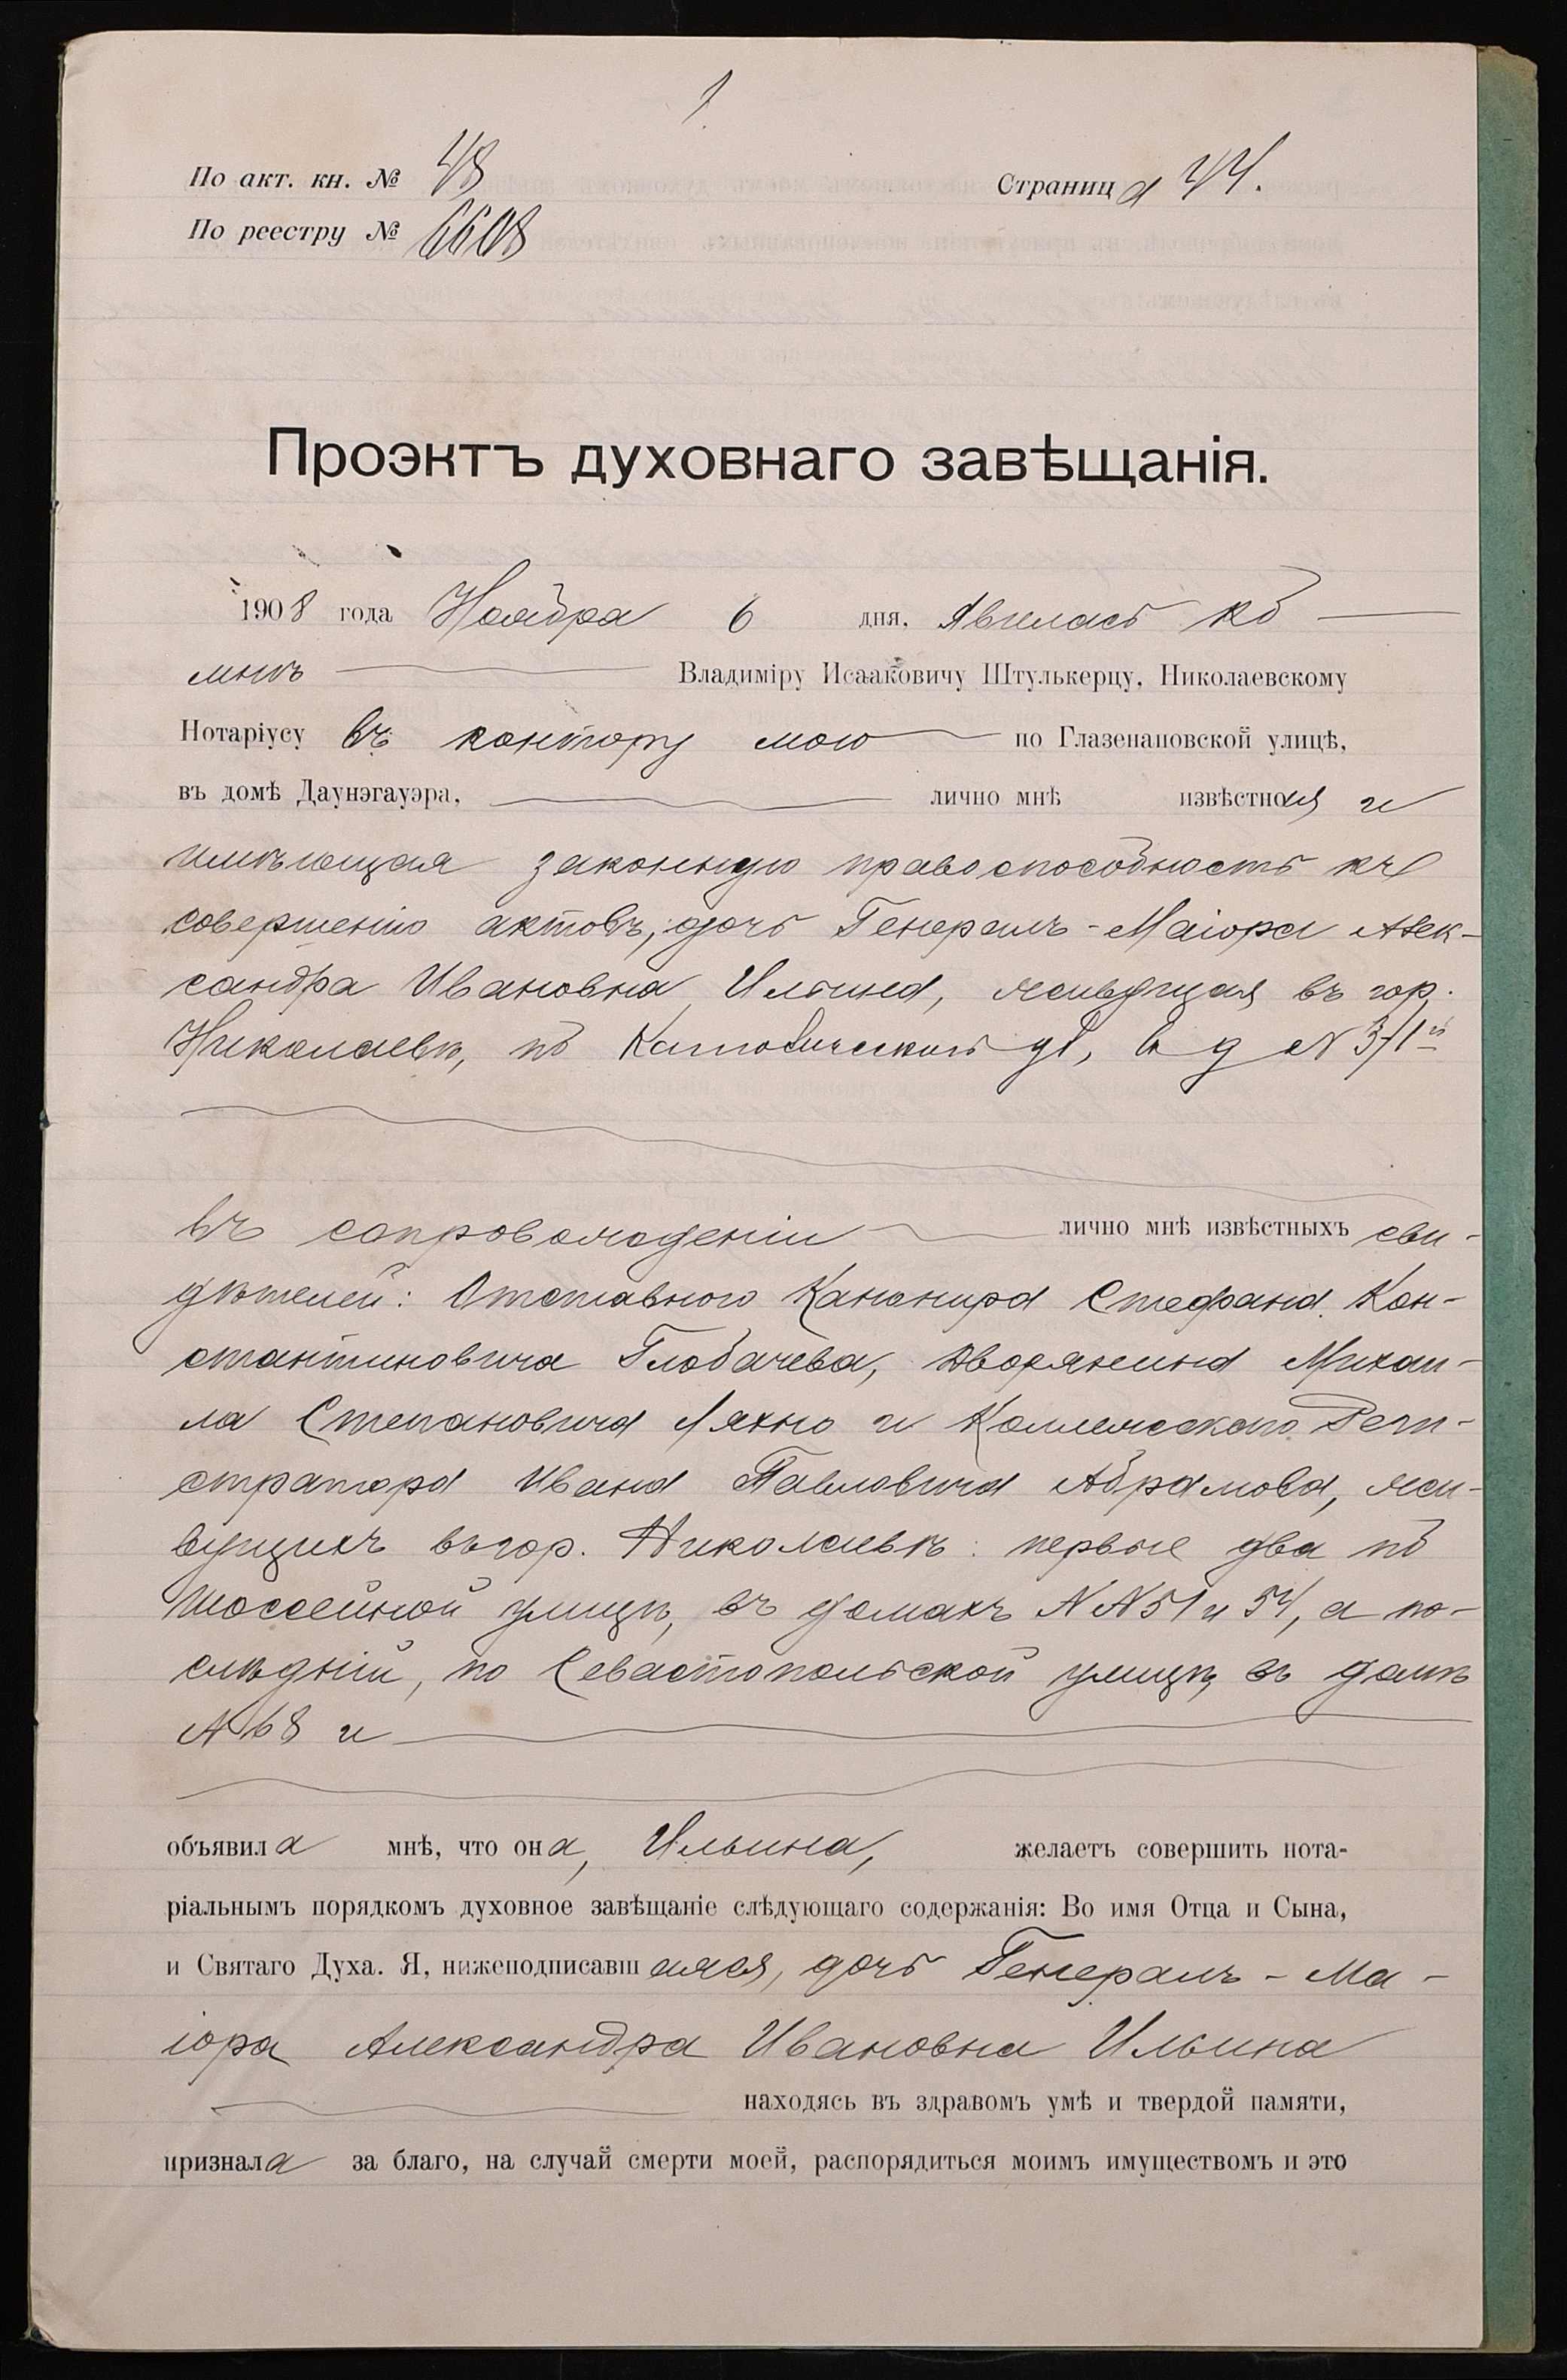 1
По акт. кн. № 48
Страница 44.
По реестру № 6608
Проэктъ духовнаго завѣщанія.
1908 года Ноября 6 дня, явилась ко
мнѣ Владиміру Исааковичу Штулькерцу, Николаевскому
Нотаріусу въ контору мою по Глазенаповской улицѣ,
въ домѣ Даунэгауэра, лично мнѣ извѣстная и
имѣющая законную правоспособность къ
совершенію актовъ, дочь Генералъ-Маіора Алек-
сандра Ивановна Ильина, живущая въ гор.
Николаевѣ, по Католической ул, в д №
въ сопровожденіи лично мнѣ извѣстныхъ сви-
дѣтелей: Отставного Канонира Стефана Кон-
стантиновича Глобачева, Дворянина Михаи-
ла Степановича Ляхно и Коллежскаго Реги-
стратора Ивана Павловича Абрамова, жи-
вущихъ въ гор. Николаевѣ: первые два по
Шоссейной улицѣ, въ домахъ №№ 51 и 54, а по-
слѣдній, по Севастопольской улицѣ въ домѣ
№ 68 и
объявила мнѣ, что она, Ильина, желаетъ совершить нота-
ріальнымъ порядкомъ духовное завѣщаніе слѣдующаго содержанія: Во имя Отца и Сына,
и Святаго Духа. Я, нижеподписавшаяся, дочь Генералъ-Ма-
іора Александра Ивановна Ильина
находясь въ здравомъ умѣ и твердой памяти,
признала за благо, на случай смерти моей, распорядиться моимъ имуществомъ и это